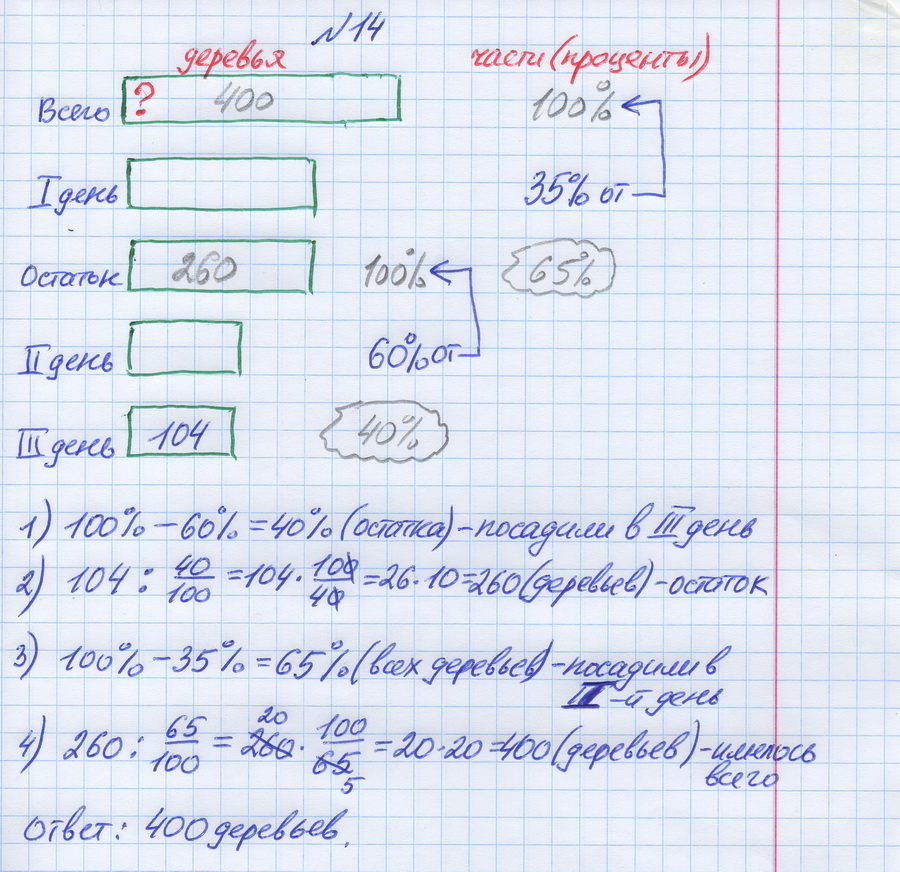 №14
деревья части (проценты)
Всего ? 400 100%
I день 35% от
Остаток 260 100% 65%
II день 60% от
III день 104 40%
1) 100% - 60% = 40% (остатка) - посадили в III день
2) 104 : 40/100 = 104 · 100/40 = 26 · 10 = 260 (деревьев) - остаток
3) 100% - 35% = 65% (всех деревьев) - посадили в
II-й день
4) 260 : 65/100 = 260 20 · 100/65 5 = 20 · 20 = 400 (деревьев) - имелось
всего
Ответ: 400 деревьев.